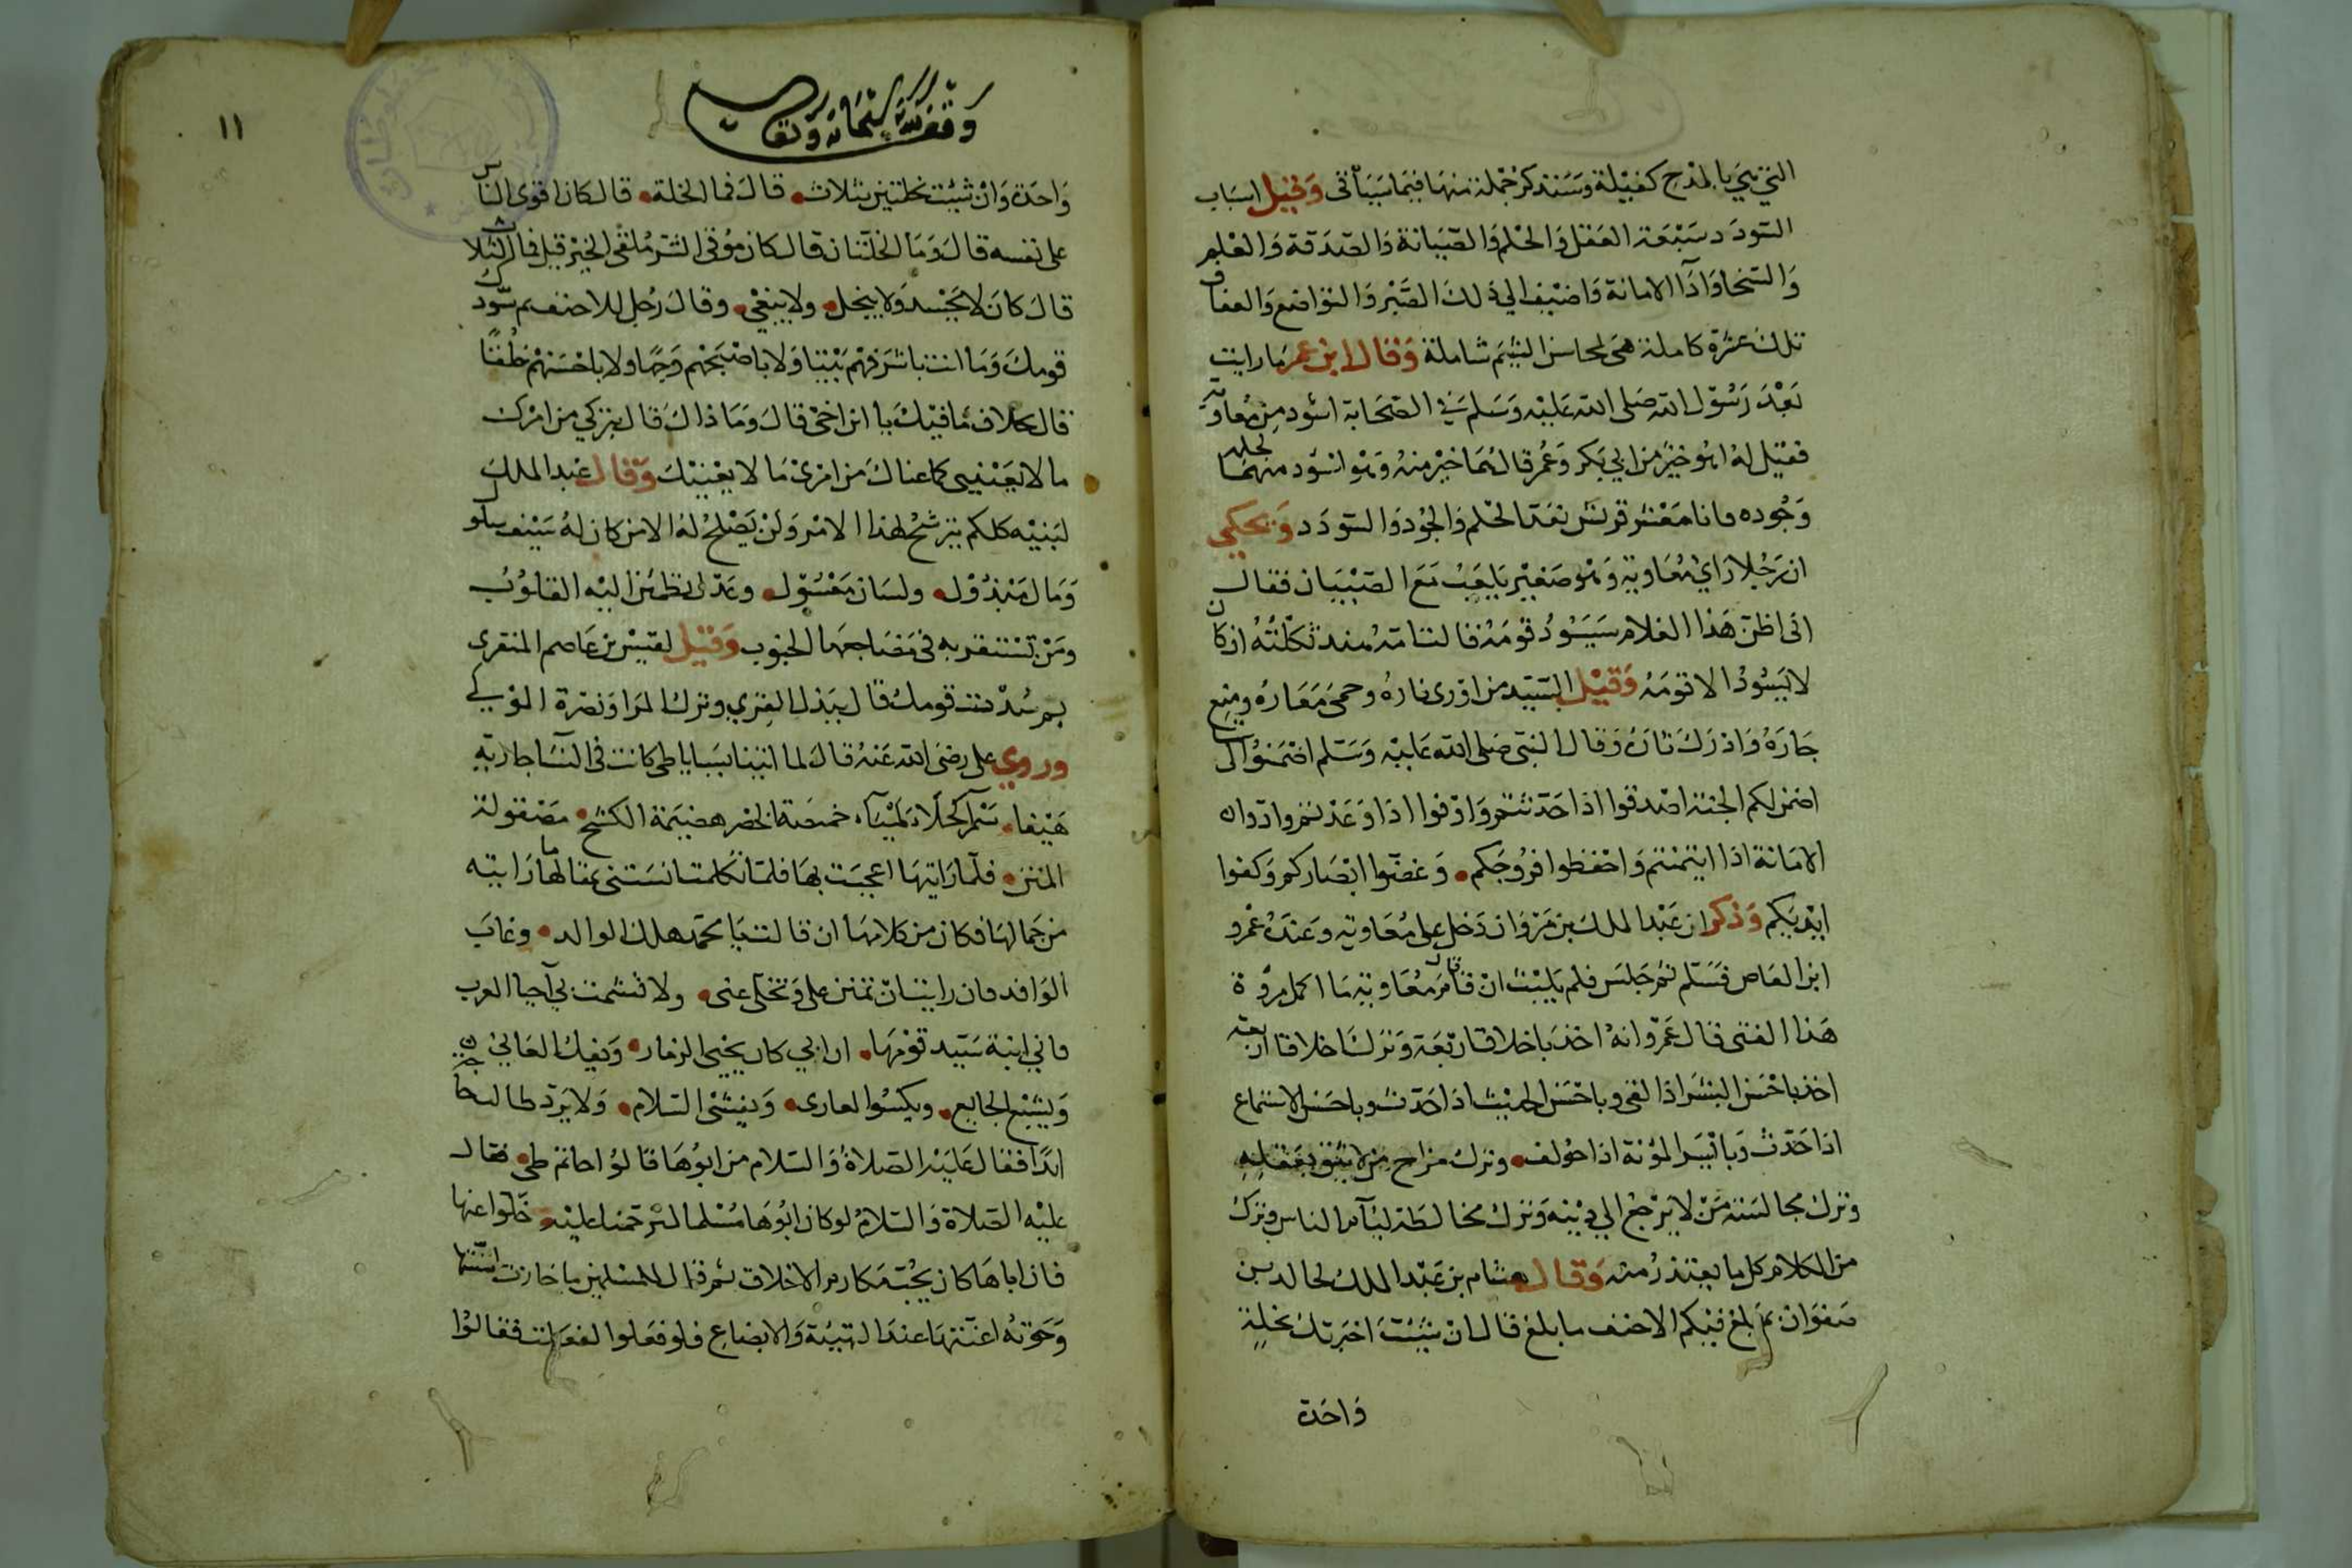 التي هي بالمدح كفيلة وسنذكر جملة منها فيما سيأتى وقيل اسباب
السودد سبعة العقل والحلم والصيانة والصدقة والعلم
والسخا وادآ الامانة واضيف الي ذلك الصبر والتواضع والعفاف
تلك عشرة كاملة هى لمحاسن الشيم شاملة وقال ابن عمر مارايت
بعد رسول الله صلى الله عليه وسلم في الصحابة اسود من معاوية
فقيل له اهو خير من ابي بكر وعمر قال هما خير منه وهو اسود منهما بحلمه
وجوده وانا معشر قريش نعد الحلم والجود السودد ويحكي
ان رجلا راي معاوية وهو صغير يلعب مع الصبيان فقال
انى اظن هذا الغلام سيسود قومه فقالت امه هند ثكلته ان كان
لا يسود الا قومه وقيل السيد من اورى ناره وحمى معاره ومنع
جاره وادرك ثاره وقال النبى صلى الله عليه وسلم اضمنوا لى ستا
اضمن لكم الجنة اصدقوا اذا حدثتم واوفوا اذا وعدتم وادوا
الامانة اذا ايتمنتم واحفظوا فروجكم وغضوا ابصاركم وكفوا
ايديكم وذكر ان عبد الملك بن مروان دخل على معاوية وعنده عمرو
ابن العاص فسلم ثم جلس فلم يلبث ان قام قال معاوية ما اكمل مروة
هذا الفتى فقال عمرو انه اخذ باخلاق اربعة وترك اخلاقا اربعة
اخذ باحسن البشر اذا لقى وباحسن الحديث اذا حدث وباحسن الاستماع
اذا حدث وبايسر المؤنة اذا خولف وترك مزاح من لا يثق بعقله
وترك مجالسة من لا يرجع الي دينه وترك مخالطة ليآم الناس وترك
من الكلام كل ما يعتذر منه وقال هشام بن عبد الملك لخالد بن
صفوان بم بلغ فيكم الاحنف ما بلغ قال ان شيت اخبرتك بخلة
واحدة
١١
وقف كتبخانه
واحدة وان شيت بخلتين بثلاث قال فما الخلة قال كان اقوى الناس
على نفسه قال وما الخلتان قال كان موقى الشر ملقى الخير قيل فما الثلاث
قال كان لا يحسد ولا يبخل ولا يبغي وقال رجل للاحنف بم سودك
قومك وما انت باشرفهم بيتا ولا باصبحهم وجها ولا باحسنهم خلقا
قال بخلاف ما فيك يا ابن اخى قال وما ذاك قال بتركي من امرك
ما لا يعنيني كما عناك من امرى ما لا يعنيك وقال عبد الملك
لبنيه كلكم يترشح لهذا الامر ولن يصلح له الا من كان له سيف مسلول
ومال مبذول ولسان معسول وعدل تطمئن اليه القلوب
ومن تستقر به فى مضاجعها الجنوب وقيل لقيس بن عاصم المنقرى
بم سدت قومك قال ببذل القرى وترك المرا ونصرة المولي
وروي على رضى الله عنه قال لما اتينا بسبايا طى كانت فى النسا جارية
هيفا سمرآ كحلاء لميآء خمصة الخصر هضيمة الكشح مصقولة
المتن فلما رايتها اعجبت بها فلما تكلمت انستنى بمقالها ما رايته
من جمالها فكان من كلامها ان قالت يا محمد هلك الوالد وغاب
الوافد فان رايت ان تمنن على وتخلى عنى ولا تشمت بي آحيا العرب
فاني ابنة سيد قومها ان ابي كان يحيى الزمار ويفك العاني
ويشبع الجايع ويكسوا العارى ويفشى السلام ولا يرد طالب حاجة
ابدا فقال عليه الصلاة والسلام من ابوها قالوا حاتم طى فقال
عليه الصلاة والسلام لو كان ابوها مسلما لترحمنا عليه خلوا عنها
فان اباها كان يحب مكارم الاخلاق ثم قال للمسلمين ما حازت اسنتها
وحوته اعنتها عند التبيئة والايضاع فلو فعلوا لفعلت فقالوا